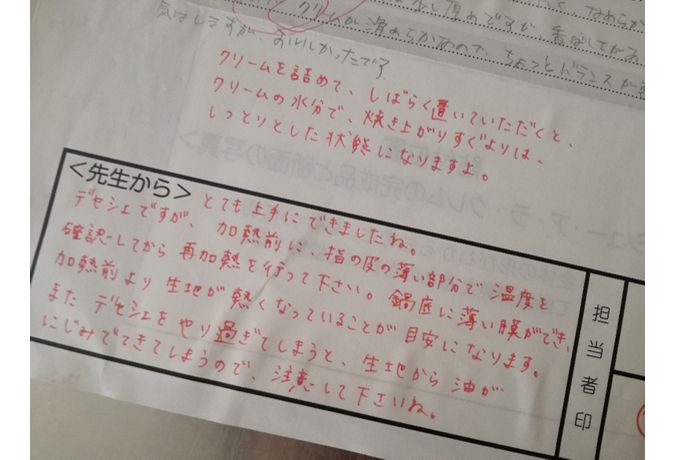 クリームが滑めらかなので、ちょっとバランスが
気はしますが、おいしかったです
クリームを詰めて、しばらく置いていただくと、
クリームの水分で、焼き上がりすぐよりは、
しっとりとした状態になりますよ。
<先生から>
とても上手にできましたね。
デセシェですが、加熱前に、指の皮の薄い部分で温度を
確認してから再加熱を行って下さい。鍋底に薄い膜ができ、
加熱前より生地が熱くなっていることが目安になります。
また デセシェをやり過ぎてしまうと、生地から油が
にじみでてきてしまうので、注意して下さいね。
担当者印